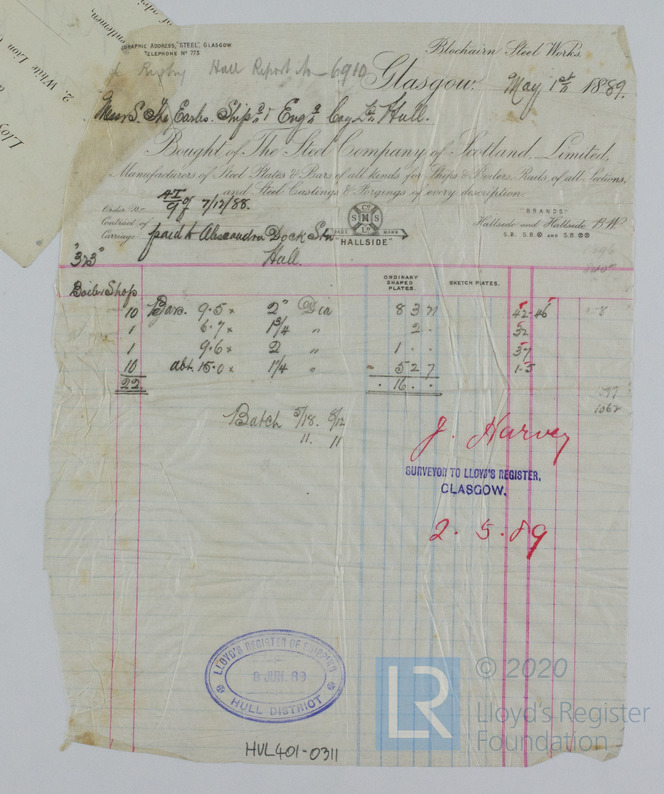 GRAPHIC ADDRESS, "STEEL" GLASGOW
TELEPHONE No 775
Blochairn Steel Works.
Rugby Hall Report No - 6910
Glasgow. May 1st 1889.
Messrs The Earles Shipg & Engg Coy Ld Hull.
Bought of The Steel Company of Scotland, Limited,
Manufacturers of Steel Plates & Bars of all kinds for Ships & Boilers, Rails of all Sections,
and Steel Castings & Forgings of every description
Order No of 7/12/88.
Contract of
Carriage paid to Alexandra Dock Stn
Hull.
TRADE MARK
Co
S M S
Ld
"HALLSIDE"
BRANDS
Hallside and Hallside BW
S.B. S.B. AND S.B.
"323"
ORDINARY SHAPED PLATES.
SKETCH PLATES.
Boiler Shop
10 Bars. 9.5 x 2" Dia 8 3 21
1 6.7 x 1¾ " 2 .
1 9.6 x 2 " 1 . .
10 abt. 15.0 x 1¼ " 5 2 7
22. 16 . .
Batch 5/18. 8/12
11. 11
J. Harvey
SURVEYOR TO LLOYD'S REGISTER,
GLASGOW.
2. 5. 89
LLOYD'S REGISTER OF SHIPPING
8 JUN. 89
HULL DISTRICT
HUL401-0311
LR
© 2020
Lloyd's Register
Foundation
2, White Lion